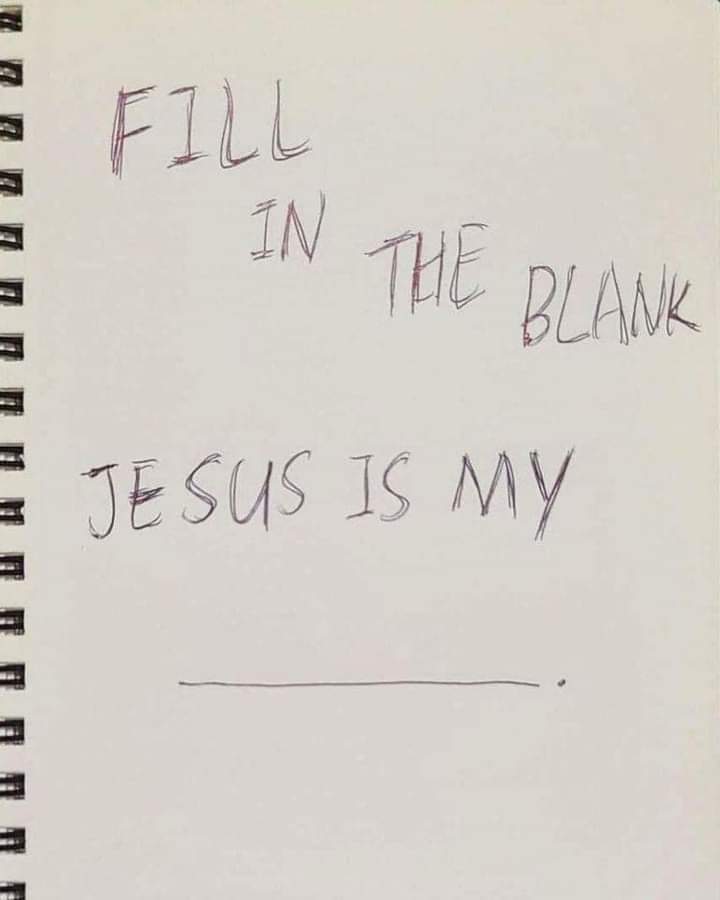 FILL
IN THE BLANK
JESUS IS MY
__________.